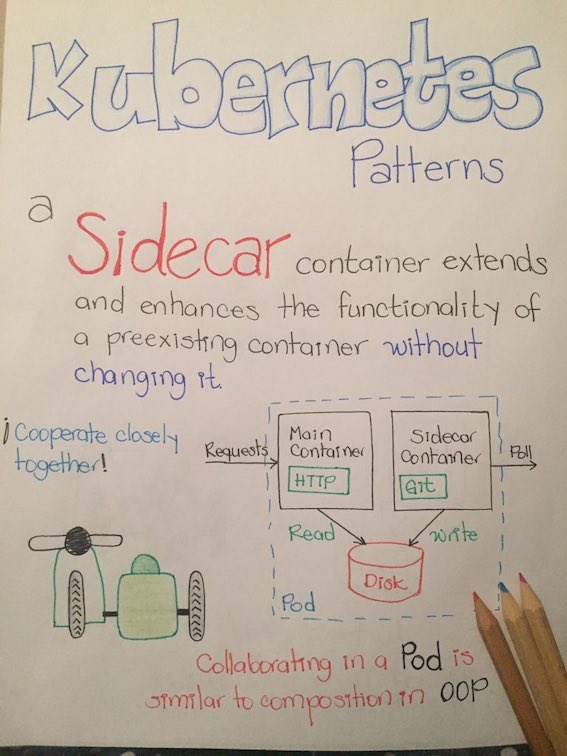 Kubernetes
Patterns
a
Sidecar container extends
and enhances the functionality of
a preexisting container without
changing it.
¡Cooperate closely
together!
Requests
Main
Container
HTTP
Sidecar
Container
Git
Poll
Read
Write
Disk
Pod
Collaborating in a Pod is
similar to composition in OOP